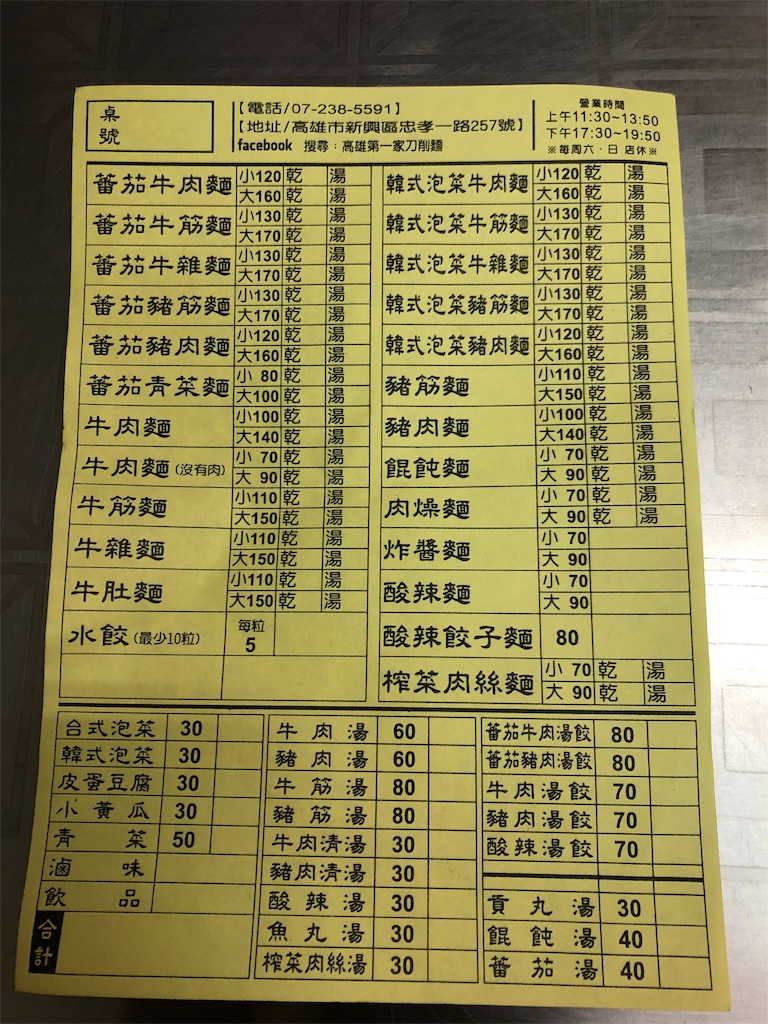 桌號
【電話/07-238-5591】
【地址/高雄市新興區忠孝一路257號】
facebook 搜尋：高雄第一家刀削麵
營業時間
上午11:30~13:50
下午17:30~19:50
※每周六、日 店休※
蕃茄牛肉麵 小120 乾 湯
大160 乾 湯
蕃茄牛筋麵 小130 乾 湯
大170 乾 湯
蕃茄牛雜麵 小130 乾 湯
大170 乾 湯
蕃茄豬筋麵 小130 乾 湯
大170 乾 湯
蕃茄豬肉麵 小120 乾 湯
大160 乾 湯
蕃茄青菜麵 小 80 乾 湯
大100 乾 湯
牛肉麵 小100 乾 湯
大140 乾 湯
牛肉麵(沒有肉) 小 70 乾 湯
大 90 乾 湯
牛筋麵 小110 乾 湯
大150 乾 湯
牛雜麵 小110 乾 湯
大150 乾 湯
牛肚麵 小110 乾 湯
大150 乾 湯
水餃(最少10粒) 每粒 5
韓式泡菜牛肉麵 小120 乾 湯
大160 乾 湯
韓式泡菜牛筋麵 小130 乾 湯
大170 乾 湯
韓式泡菜牛雜麵 小130 乾 湯
大170 乾 湯
韓式泡菜豬筋麵 小130 乾 湯
大170 乾 湯
韓式泡菜豬肉麵 小120 乾 湯
大160 乾 湯
豬筋麵 小110 乾 湯
大150 乾 湯
豬肉麵 小100 乾 湯
大140 乾 湯
餛飩麵 小 70 乾 湯
大 90 乾 湯
肉燥麵 小 70 乾 湯
大 90 乾 湯
炸醬麵 小 70
大 90
酸辣麵 小 70
大 90
酸辣餃子麵 80
榨菜肉絲麵 小 70 乾 湯
大 90 乾 湯
台式泡菜 30
韓式泡菜 30
皮蛋豆腐 30
小黃瓜 30
青菜 50
滷味
飲品
合計
牛肉湯 60
豬肉湯 60
牛筋湯 80
豬筋湯 80
牛肉清湯 30
豬肉清湯 30
酸辣湯 30
魚丸湯 30
榨菜肉絲湯 30
蕃茄牛肉湯餃 80
蕃茄豬肉湯餃 80
牛肉湯餃 70
豬肉湯餃 70
酸辣湯餃 70
貢丸湯 30
餛飩湯 40
蕃茄湯 40